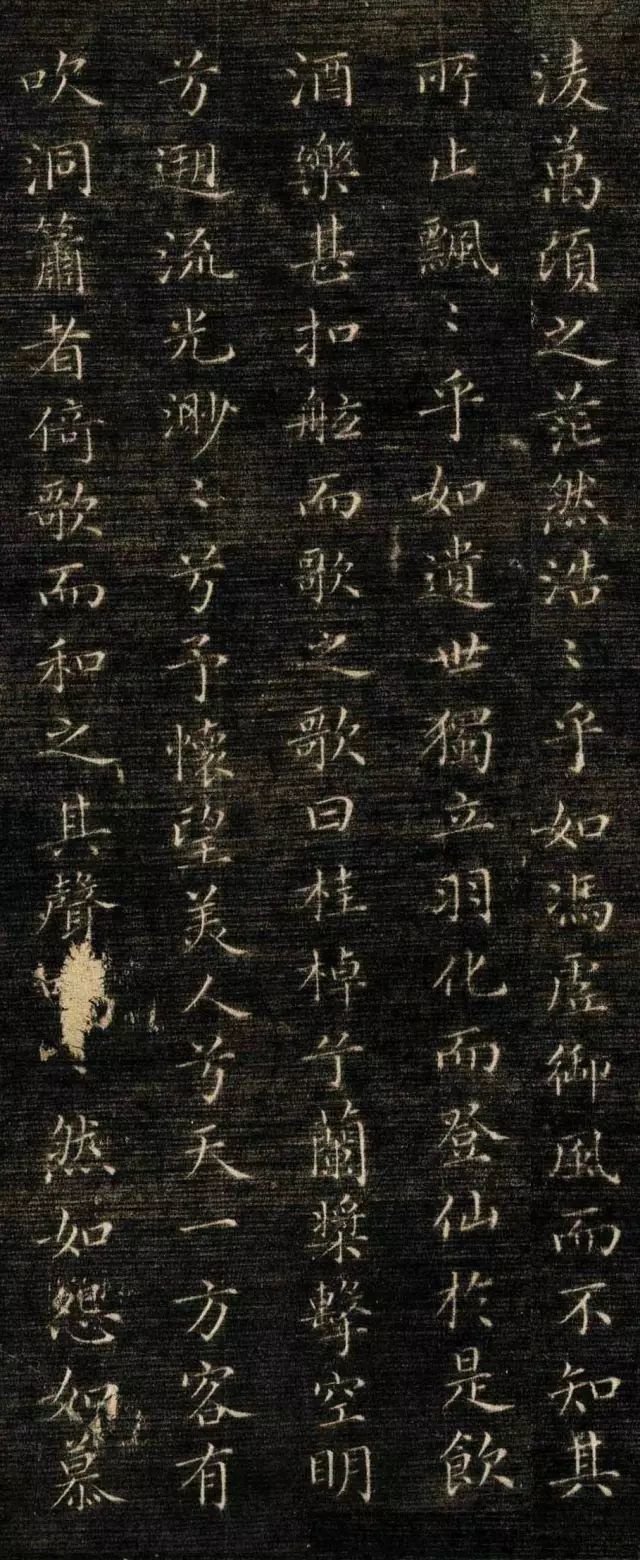 淩萬頃之茫然浩〻乎如馮虛御風而不知其
所止飄〻乎如遺世獨立羽化而登仙於是飲
酒樂甚扣舷而歌之歌曰桂棹兮蘭槳擊空明
兮遡流光渺〻兮予懷望美人兮天一方客有
吹洞簫者倚歌而和之其聲然如怨如慕